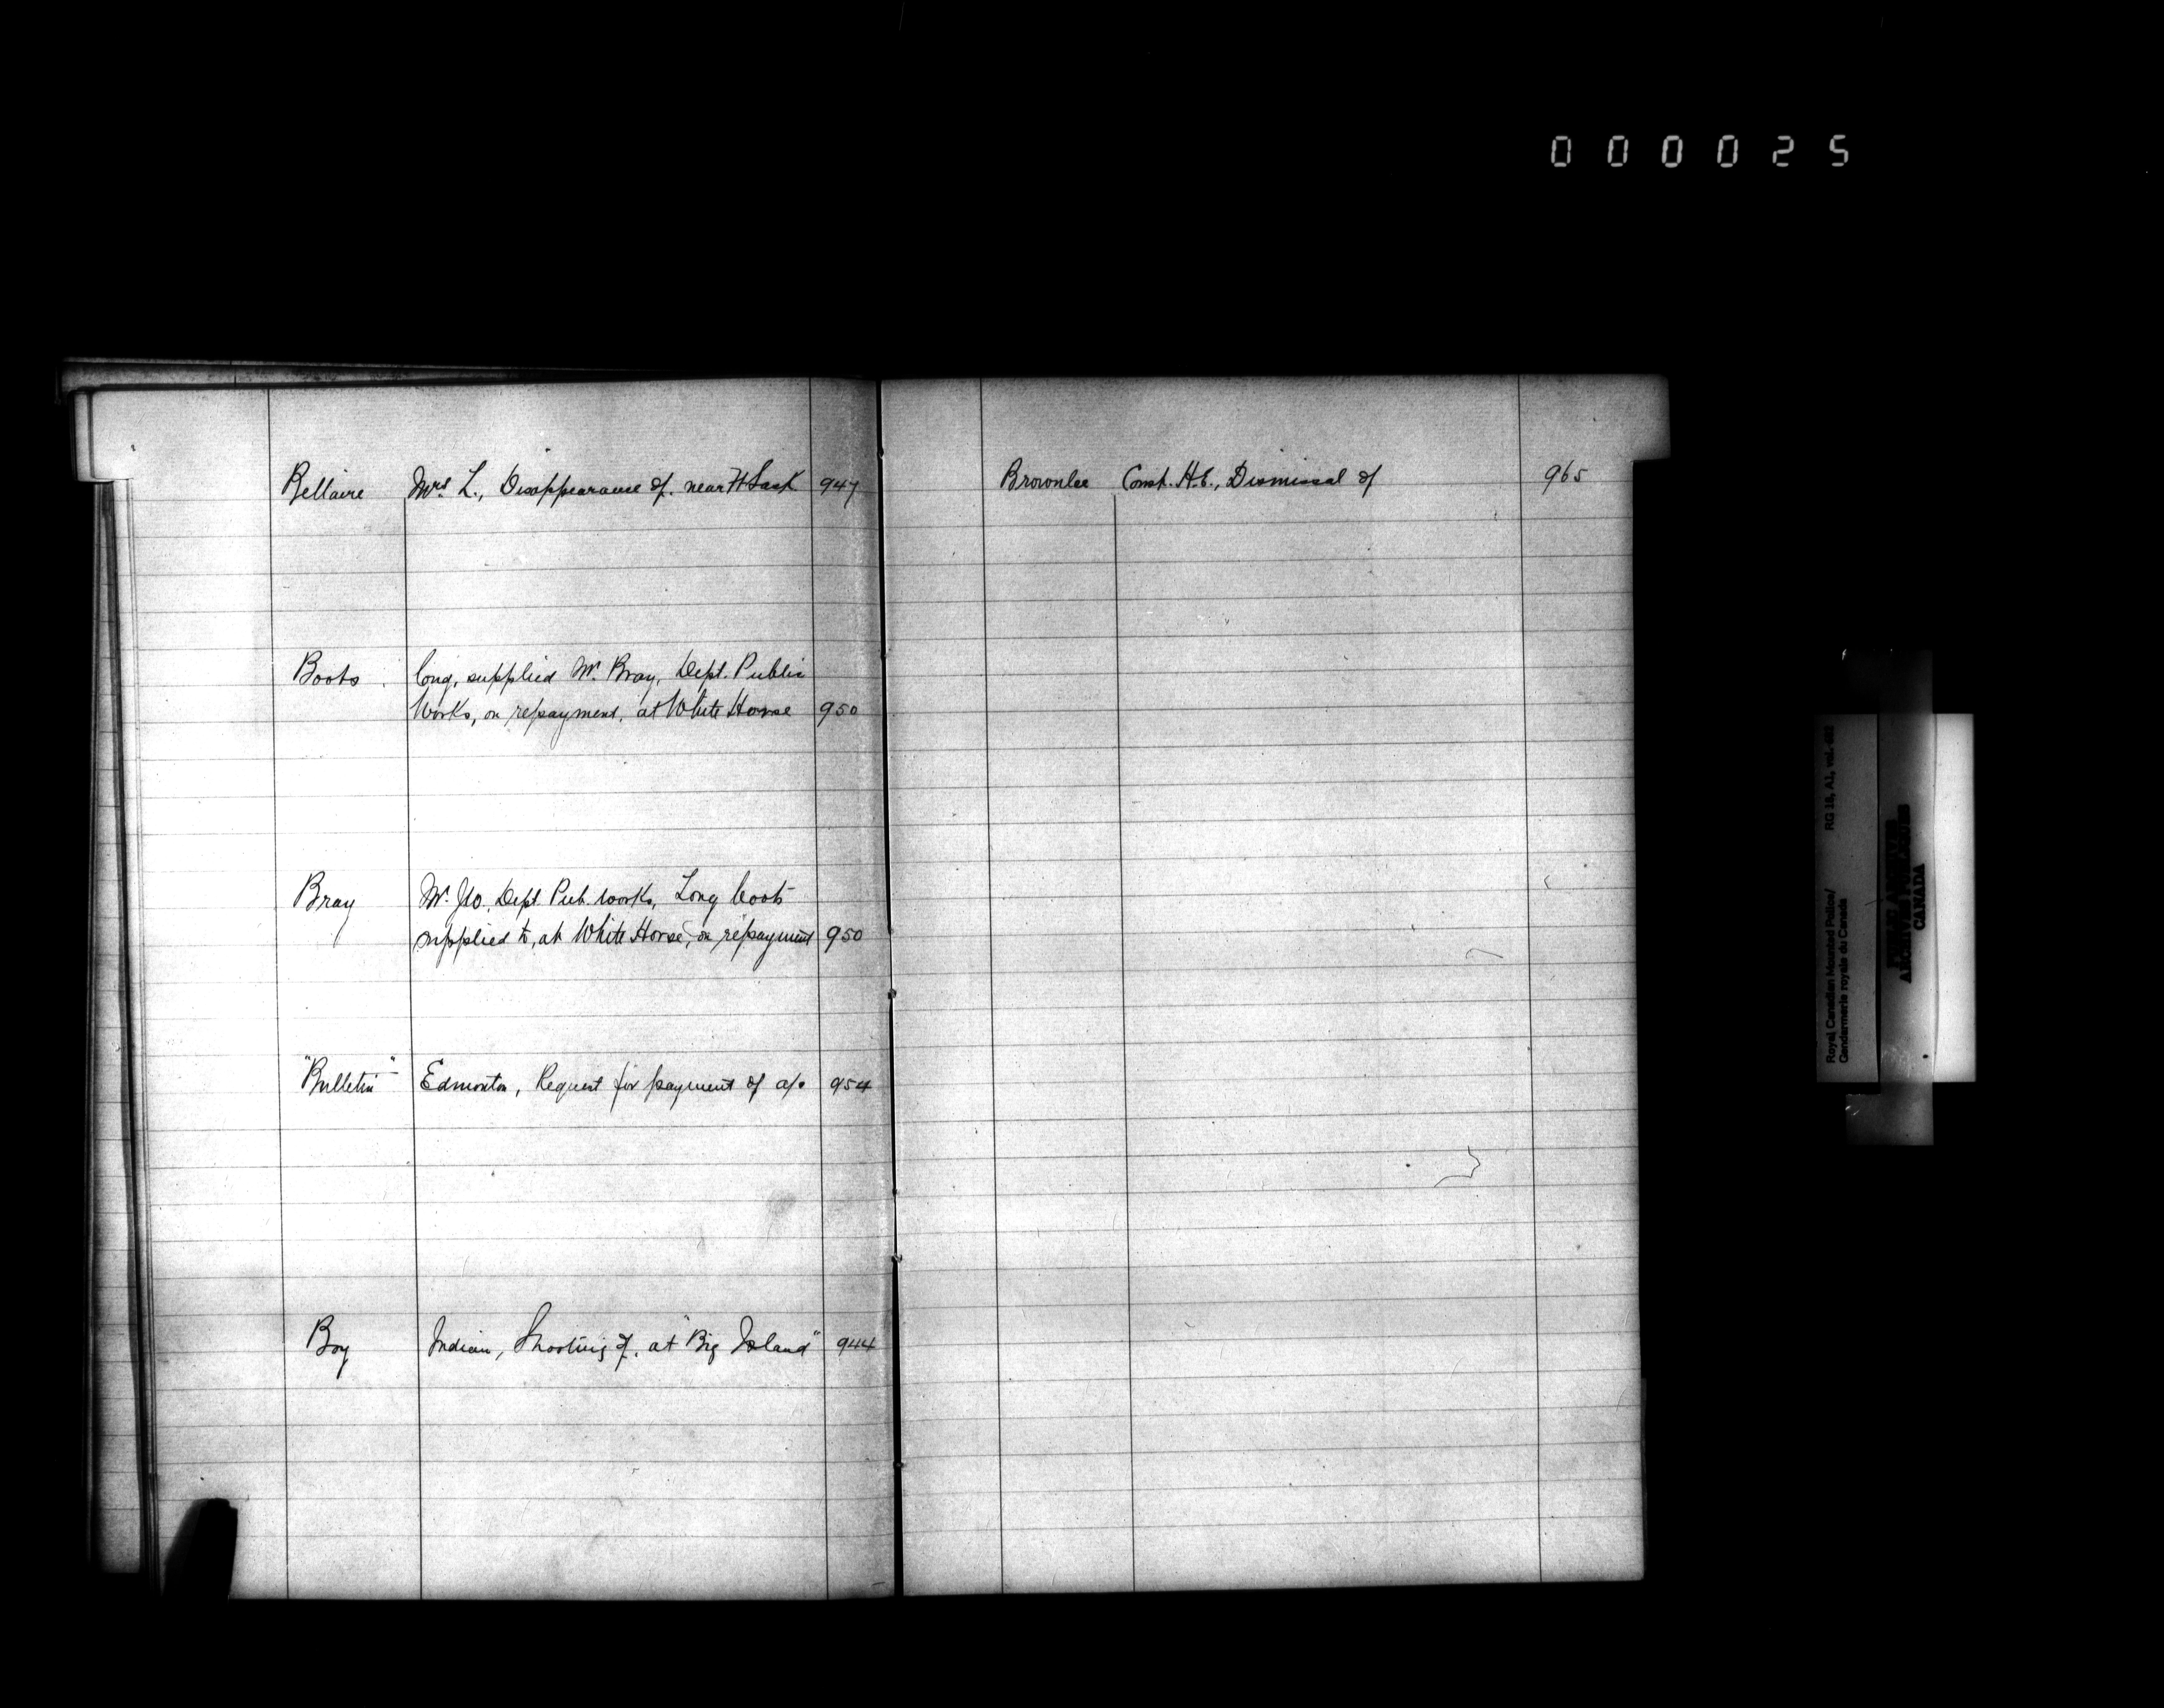 000025
Bellaire Mrs. L., Disappearance of, near Ft Sask 947
Boots long, supplied Mr. Bray, Dept. Public
Works, on repayment, at White Horse 950
Bray Mr. Jso. Dept. Pub. Works, Long boots
supplied to, at White Horse, on repayment 950
"Bulletin" Edmonton, Request for payment of a/c 954
Boy Indian, Shooting of, at "Big Island" 944
Brownlee Const. H.E., Dismissal of 965
Royal Canadian Mounted Police/ RG 18, A1, vol.
Gendarmerie royale du Canada
PUBLIC ARCHIVES
ARCHIVES PUBLIQUES
CANADA